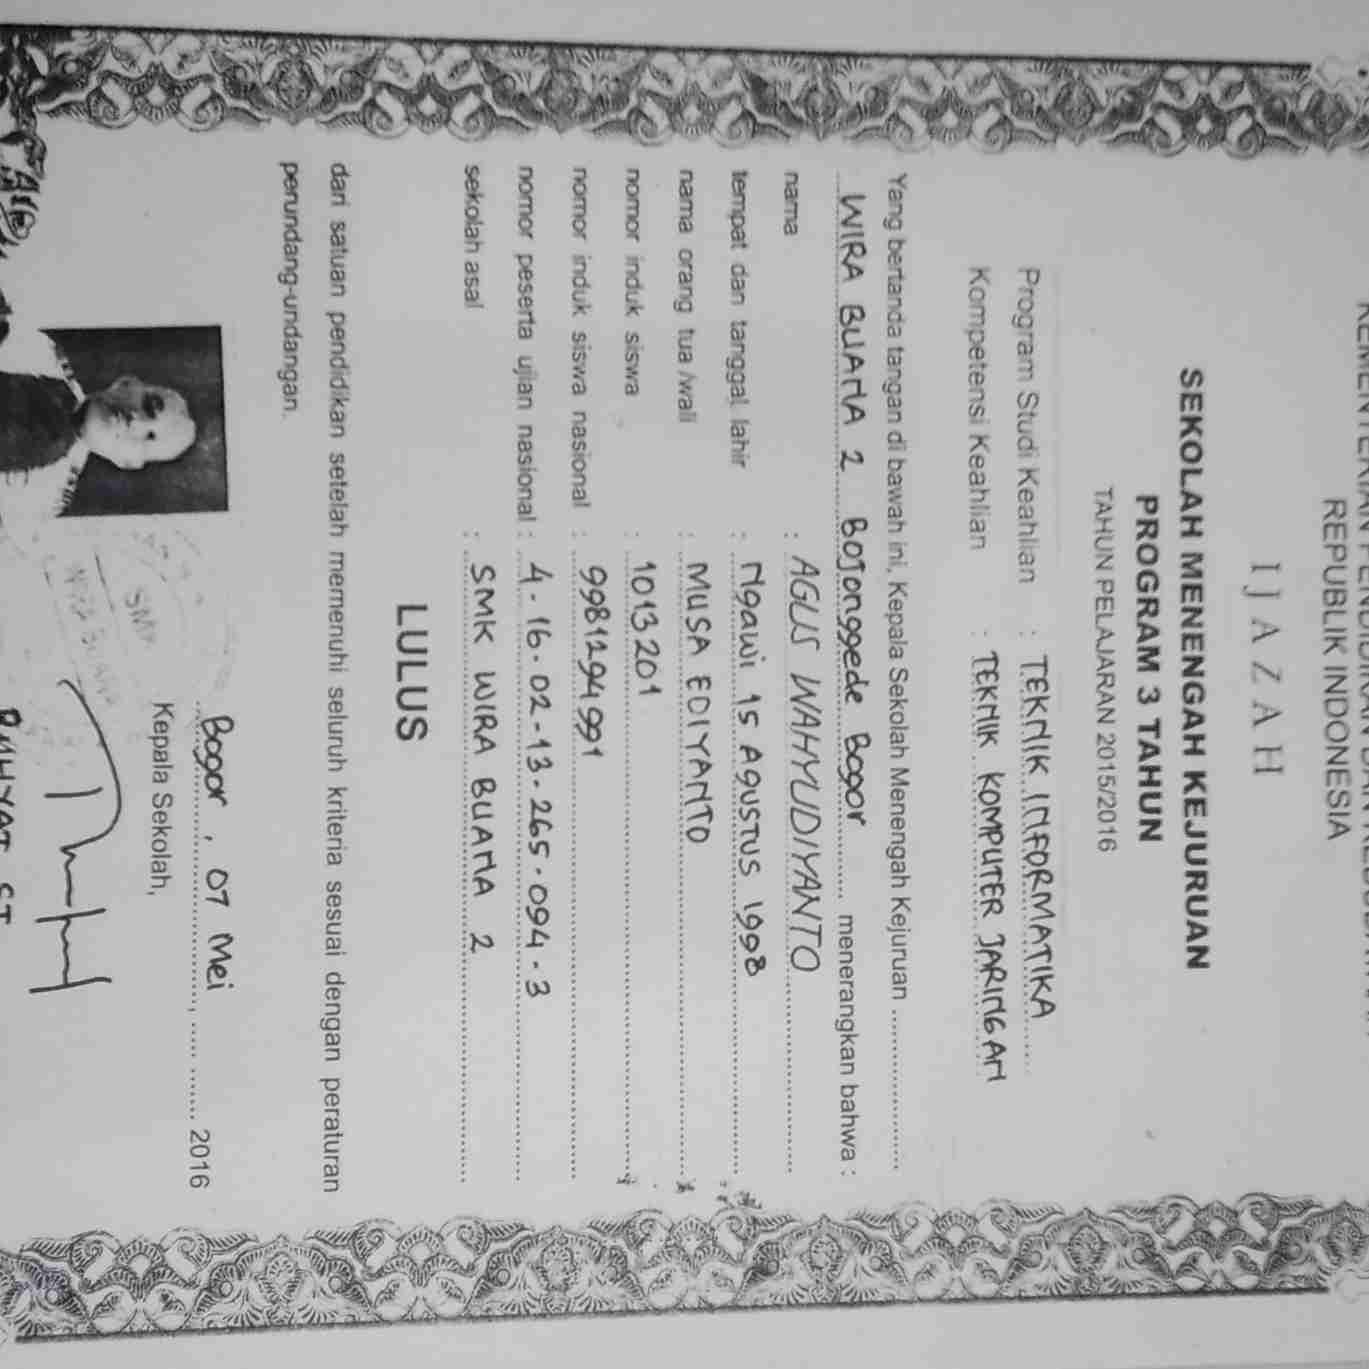 REPUBLIK INDONESIA
IJAZAH
SEKOLAH MENENGAH KEJURUAN
PROGRAM 3 TAHUN
TAHUN PELAJARAN 2015/2016
Program Studi Keahlian : TEKNIK INFORMATIKA
Kompetensi Keahlian : TEKNIK KOMPUTER JARINGAN
Yang bertanda tangan di bawah ini, Kepala Sekolah Menengah Kejuruan
WIRA BUANA 2 Bojonggede Bogor menerangkan bahwa :
nama : AGUS WAHYUDIYANTO
tempat dan tanggal lahir : Ngawi 15 AGUSTUS 1998
nama orang tua /wali : MUSA EDIYANTO
nomor induk siswa : 1013201
nomor induk siswa nasional : 9981294991
nomor peserta ujian nasional : 4-16-02-13-265-094-3
sekolah asal : SMK WIRA BUANA 2
LULUS
dari satuan pendidikan setelah memenuhi seluruh kriteria sesuai dengan peraturan
perundang-undangan.
Bogor, 07 Mei 2016
Kepala Sekolah,
SMK